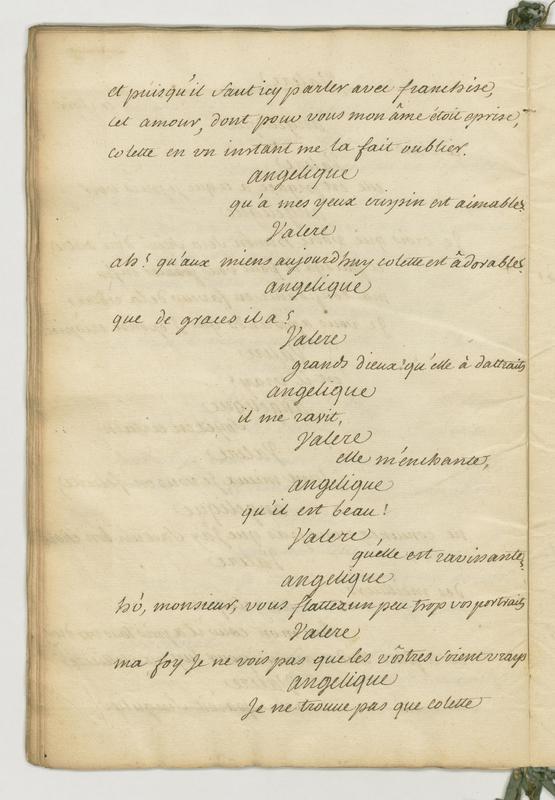 et puisqu'il faut icy parler avec franchise,
cet amour, dont pour vous mon âme étoit eprise,
colette en un instant me la fait oublier.
angelique
qu'a mes yeux crispin est aimable!
Valere
ah! qu'aux miens aujourd'huy colette est âdorable!
angelique
que de graces il a!
Valere
grands dieux! qu'elle à dattraits
angelique
il me ravit,
Valere
elle m'enchante,
angelique
qu'il est beau!
Valere
qu'elle est ravissante!
angelique
hó, monsieur, vous flattez un peu trop vos portraits
Valere
ma foy Je ne vois pas que les vôstres soient vrays
angelique
Je ne trouve pas que colette